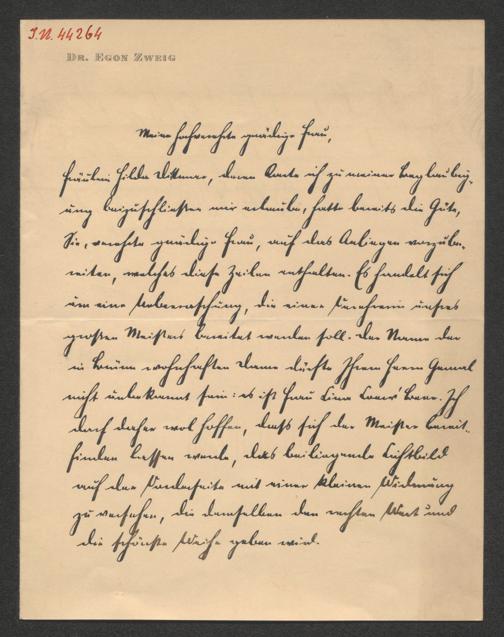 I.N. 44264
DR. EGON ZWEIG
Meine hochverehrte gnädige Frau,
Fräulein Hilda Dittmar, deren Karte ich zu meiner Beglaubig-
ung beizuschliessen mir erlaube, hatte bereits die Güte,
Sie, verehrte gnädige Frau, auf das Anliegen vorzube-
reiten, welches diese Zeilen enthalten. Es handelt sich
um eine Ueberraschung, die einer Verehrerin unseres
grossen Meisters bereitet werden soll. Der Name der
in Brünn wohnhaften Dame dürfte Ihrem Herrn Gemal
nicht unbekannt sein: es ist Frau Lina Loew' Beer. Ich
darf daher wol hoffen, dass sich der Meister bereit-
finden lassen werde, das beiliegende Lichtbild
auf der Vorderseite mit einer kleinen Widmung
zu versehen, die demselben den rechten Wert und
die schönste Weihe geben wird.